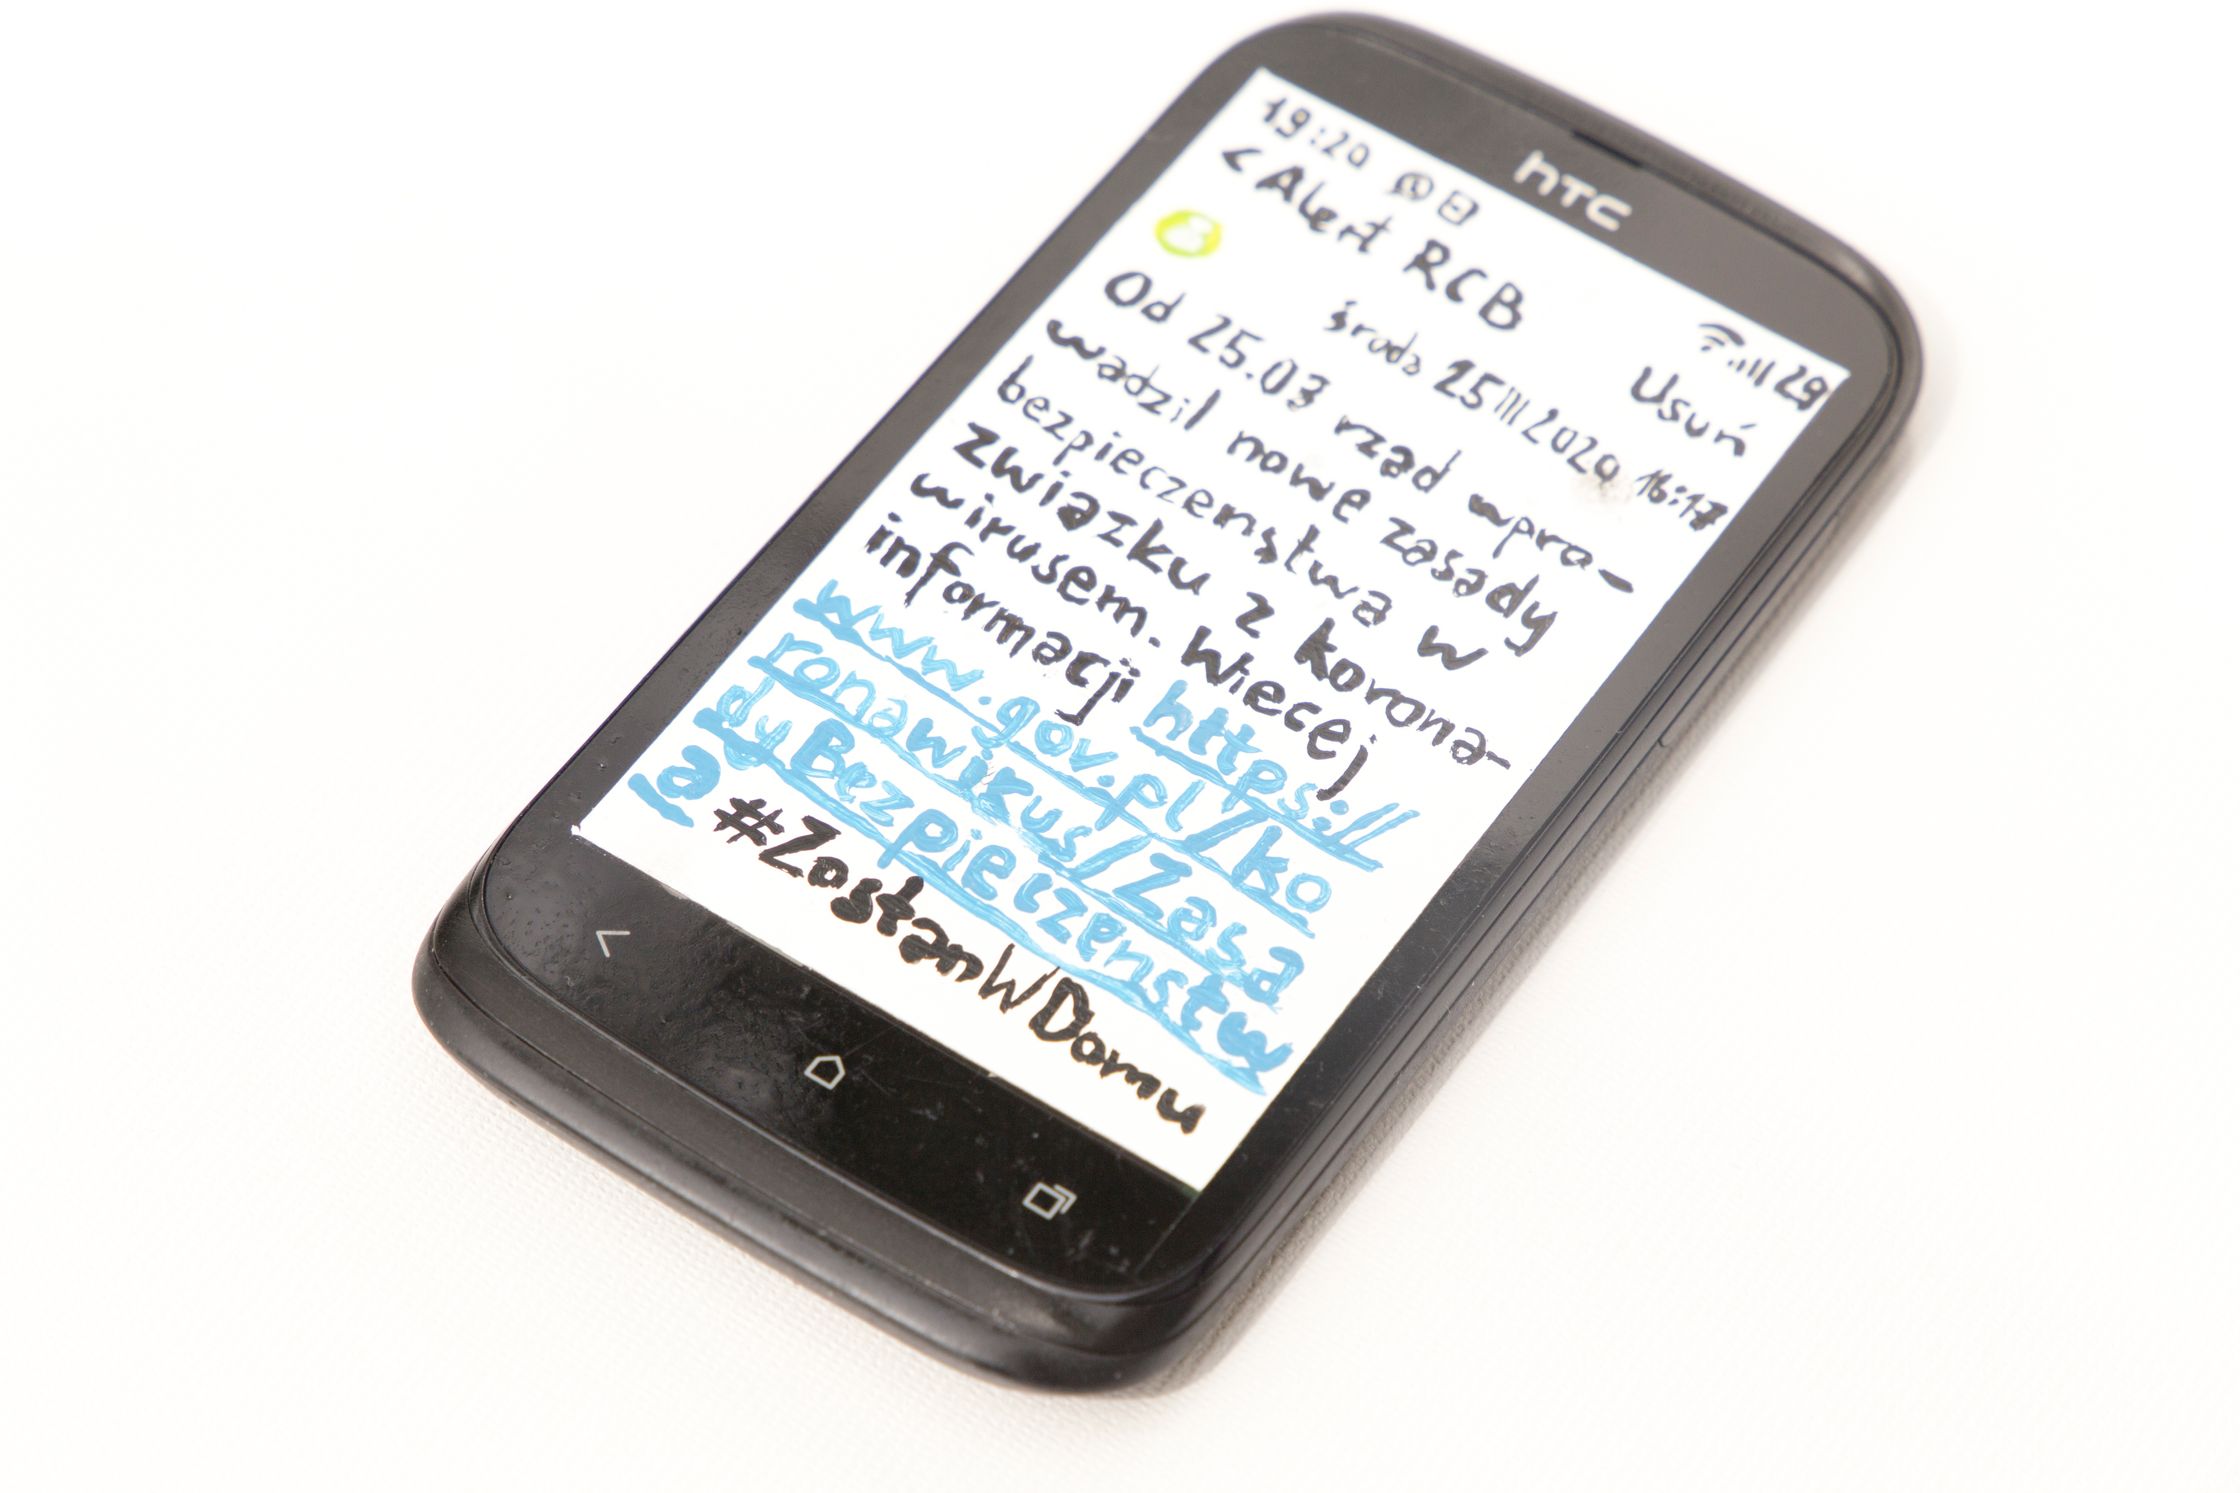 htc
19:20 29
< Alert RCB Usuń
środa 25 III 2020 16:17
Od 25.03 rząd wpro-
wadzil nowe zasady
bezpieczenstwa w
zwiazku z korona-
wirusem. Wiecej
informacji https://
www.gov.pl/ko
ronawirus/Zasa
dyBezpieczenstw
a #ZostanWDomu